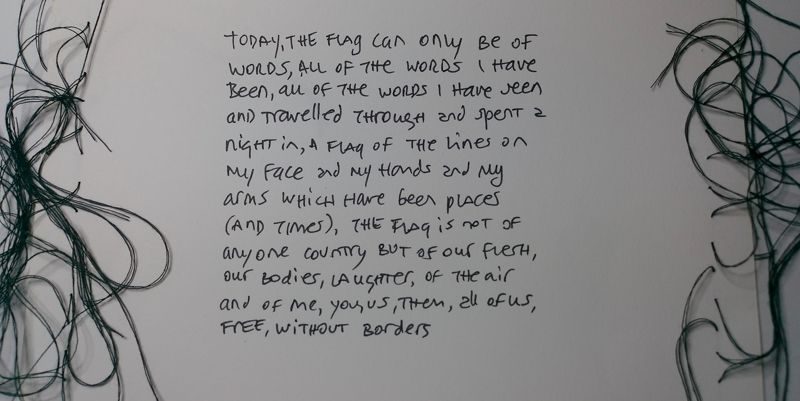 TODAY, THE FLAG CAN ONLY BE OF
WORDS, ALL OF THE WORDS I HAVE
BEEN, ALL OF THE WORDS I HAVE SEEN
AND TRAVELLED THROUGH AND SPENT A
NIGHT IN, A FLAG OF THE LINES ON
MY FACE AND MY HANDS AND MY
ARMS WHICH HAVE BEEN PLACES
(AND TIMES), THE FLAG IS NOT OF
ANY ONE COUNTRY BUT OF OUR FLESH,
OUR BODIES, LAUGHTER, OF THE AIR
AND OF ME, YOU, US, THEM, ALL OF US,
FREE, WITHOUT BORDERS